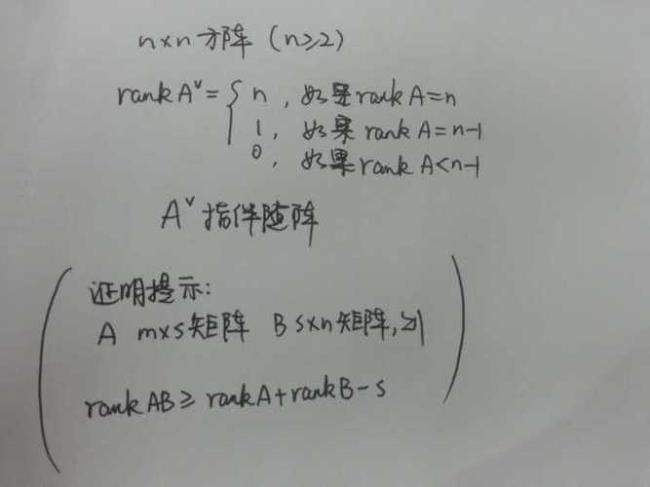 n×n方阵（n≥2）
rank A^∨ = { n，如果 rank A=n
1，如果 rank A=n-1
0，如果 rank A<n-1
A^∨ 指伴随阵
证明提示：
A m×s矩阵 B s×n矩阵，则
rank AB ≥ rank A+rank B-s